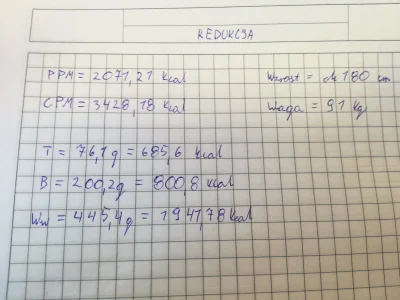 REDUKCJA
PPM = 2071,21 kcal
Wzrost = ok 180 cm
CPM = 3428,18 kcal
Waga = 91 kg
T = 76,1g = 685,6 kcal
B = 200,2g = 800,8 kcal
Ww = 445,4g = 1941,78 kcal